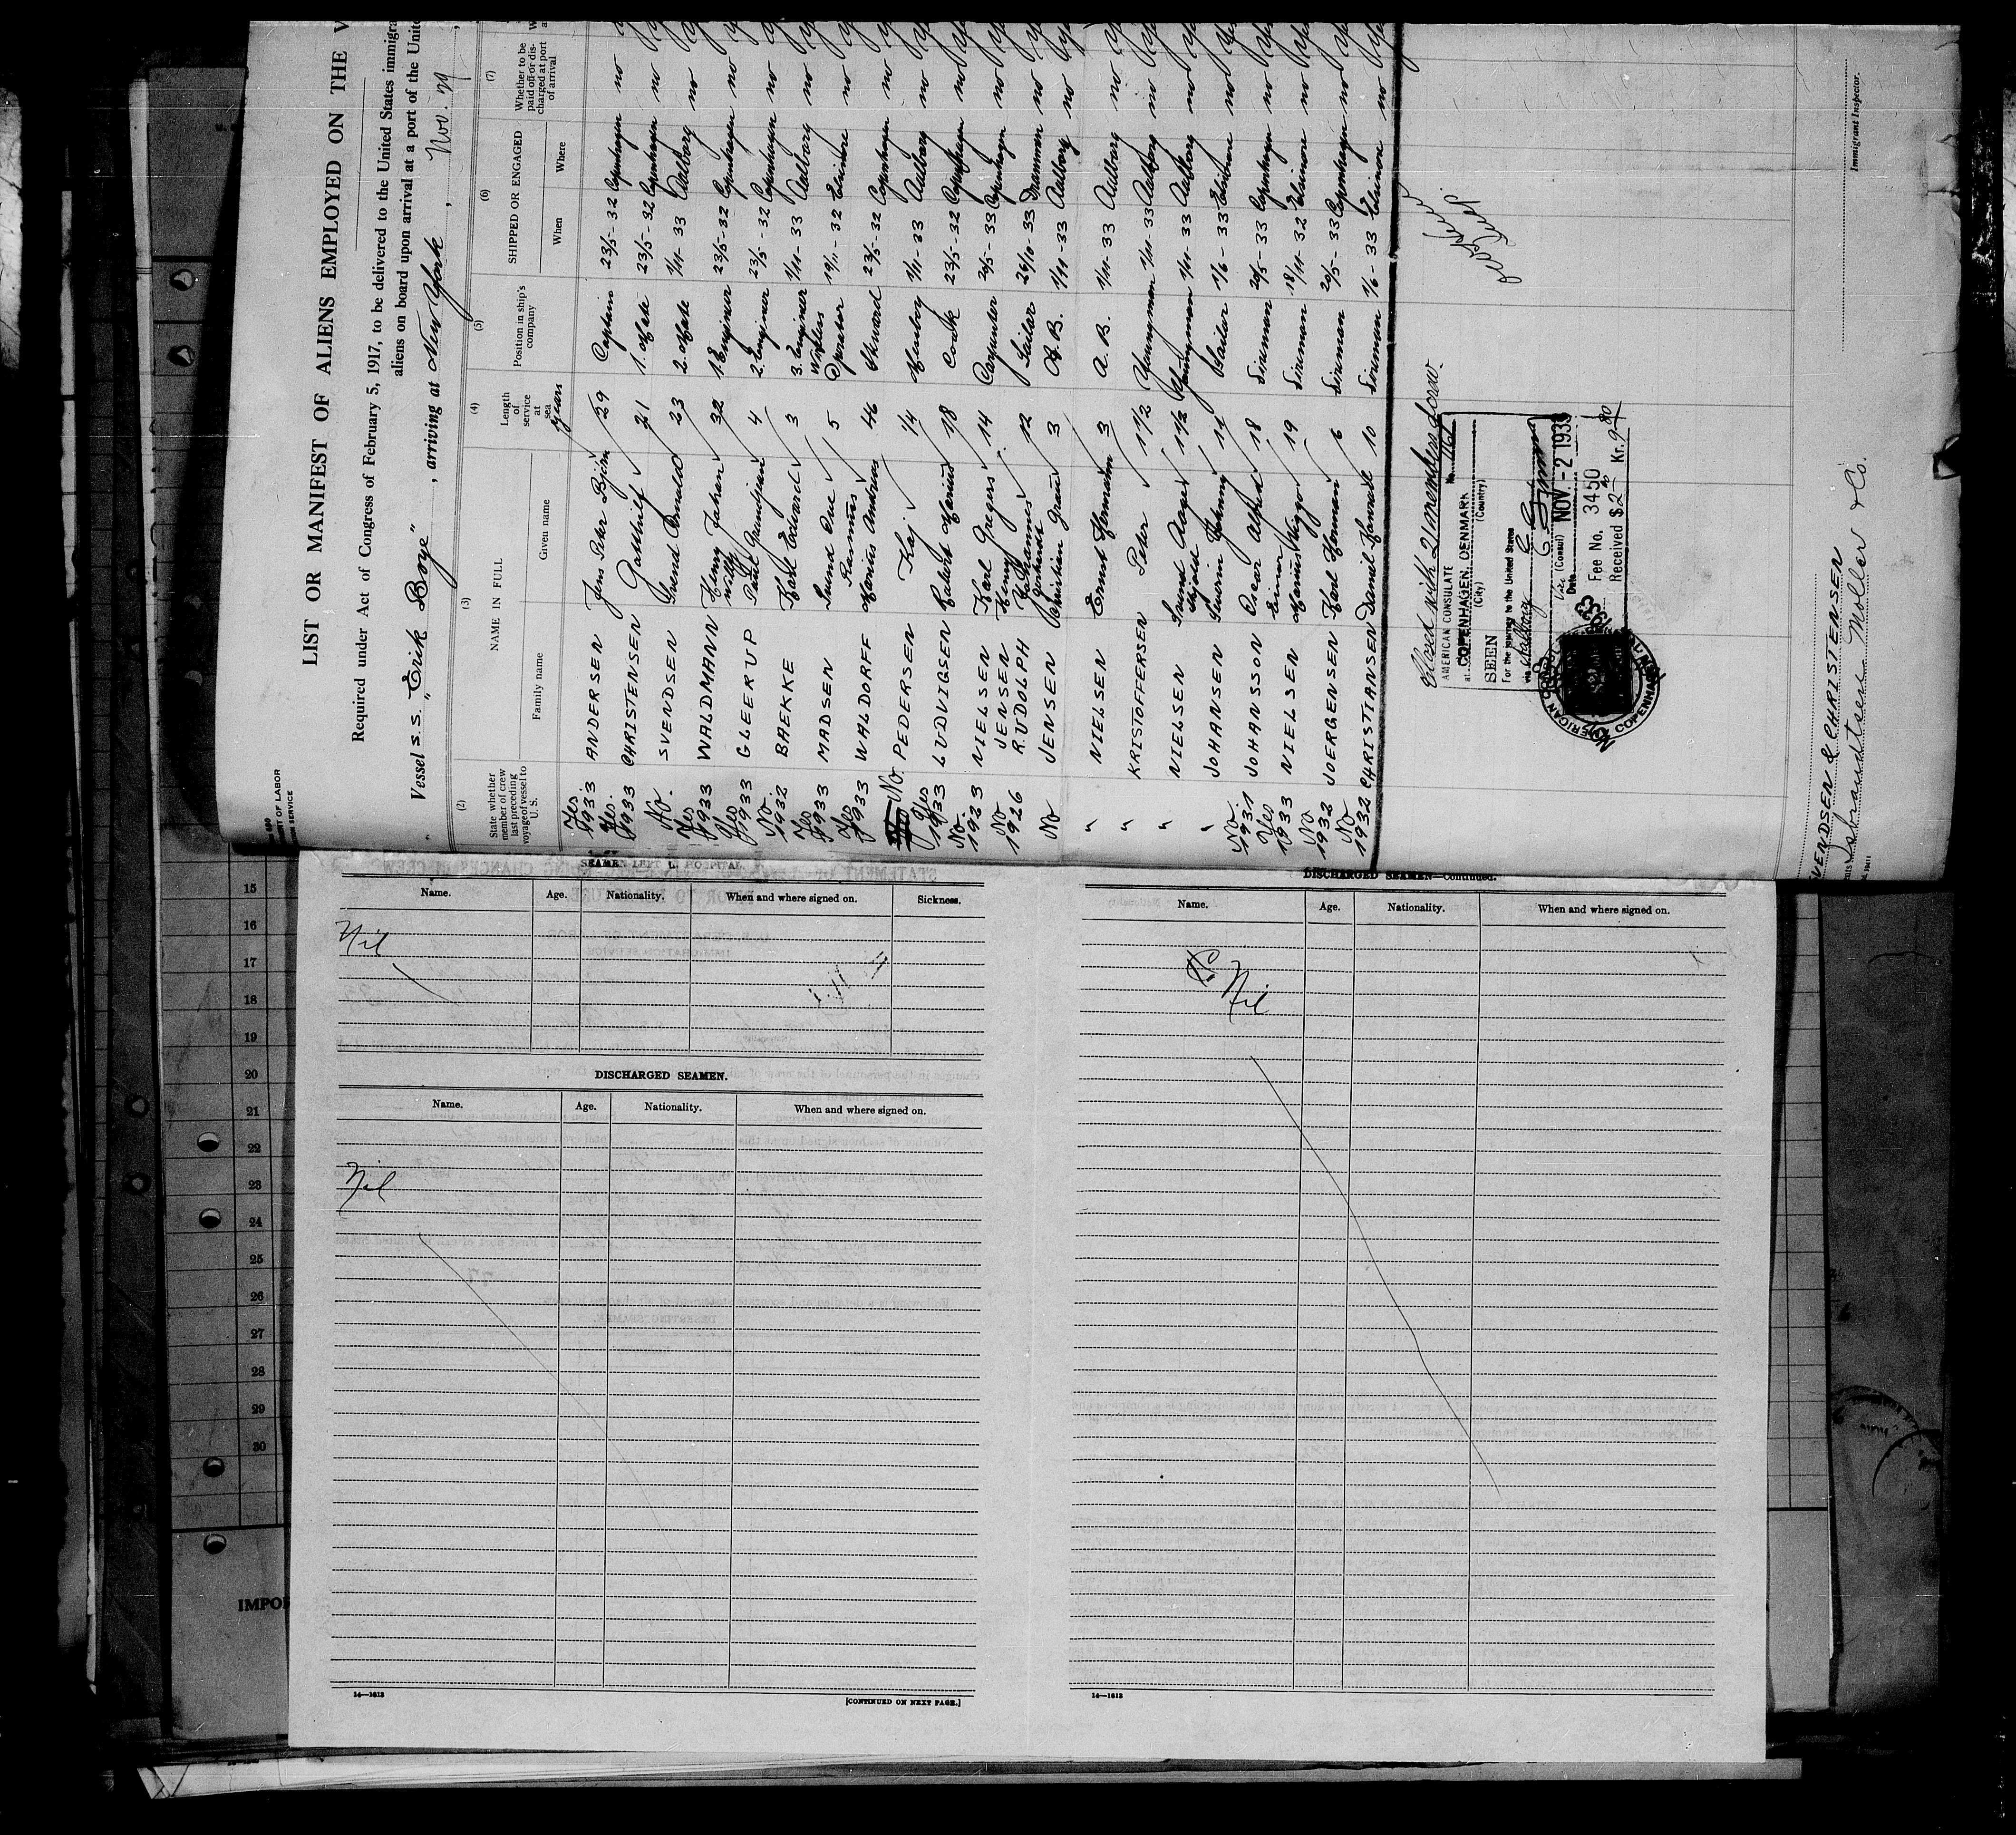 LIST OR MANIFEST OF ALIENS EMPLOYED ON THE V
Required under Act of Congress of February 5, 1917, to be delivered to the United States immigra
aliens on board upon arrival at a port of the Unit
Vessel S.S. "Erik Boye", arriving at New York, Nov. 29,
(2) (3) (4) (5) (6) (7)
State whether member of crew last preceding voyage of vessel to U. S.
NAME IN FULL
Family name Given name
Length of service at sea
years
Position in ship's company
SHIPPED OR ENGAGED
When Where
Whether to be paid off or discharged at port of arrival
Yes 1933 ANDERSEN Jens Peter Björn 29 Captain 23/5-32 Copenhagen no
Yes 1933 CHRISTENSEN Gotthilf 21 1. Mate 23/5-32 Copenhagen no
No. SVENDSEN Svend Arnold 23 2. Mate 1/11-33 Aalborg no
Yes 1933 WALDMANN Henry Johan Willy 32 1. Enginer 23/5-32 Copenhagen no
Yes 1933 GLEERUP Poul 4 2. Enginer 23/5-32 Copenhagen no
No 1932 BAEKKE Karl Edvard 3 3. Enginer 1/11-33 Aalborg no
Yes 1933 MADSEN Svend Ove 5 Wireless Operator 19/11-32 Elsinore no
Yes 1933 WALDORFF Marius Andreas 46 Steward 23/5-32 Copenhagen no
No. PEDERSEN Kaj 1/4 Messboy 1/11-33 Aalborg no
Yes 1933 LUDVIGSEN Robert Marius 18 Cook 23/5-32 Copenhagen no
No. 1923 NIELSEN Karl Gregers 14 Carpenter 20/5-33 Copenhagen no
No 1926 JENSEN RUDOLPH Henny Johannes 12 Sailor 26/10-33 Drammen no
No JENSEN Christian 3 A.B. 1/11-33 Aalborg no
" NIELSEN Ernst Hermann 3 A. B. 1/11-33 Aalborg no
" KRISTOFFERSEN Peter 1 1/2 Youngman 1/11-33 Aalborg no
" NIELSEN Svend Aage 1 1/2 Youngman 1/11-33 Aalborg no
" JOHANSEN Johnny 11 Sailor 1/6-33 Elsinore no
No. 1931 JOHANSSON Oscar Alfred 18 Fireman 20/5-33 Copenhagen no
Yes 1933 NIELSEN Einer Marius Viggo 19 Fireman 18/11-32 Elsinore no
No 1932 JOERGENSEN Karl Herman 6 Fireman 20/5-33 Copenhagen no
No 1932 CHRISTIANSEN Daniel 10 Fireman 1/6-33 Elsinore no
Closed with 21 members of crew.
AMERICAN CONSULATE
at COPENHAGEN, DENMARK
(City) (Country)
SEEN
For the journey to the United States
via Aalborg
Vice (Consul)
Date NOV.-2 1933
Fee No. 3450
Received $2 Kr. 9.80
SVENDSEN & CHRISTENSEN
Isbrandtsen Moller & Co.
Immigrant Inspector.
SEAMEN LEFT IN HOSPITAL.
Name. Age. Nationality. When and where signed on. Sickness.
Nil
DISCHARGED SEAMEN.
Name. Age. Nationality. When and where signed on.
Nil
14—1613
[CONTINUED ON NEXT PAGE.]
DISCHARGED SEAMEN—Continued.
Name. Age. Nationality. When and where signed on.
Nil
14—1613
15
16
17
18
19
20
21
22
23
24
25
26
27
28
29
30
IMPOR